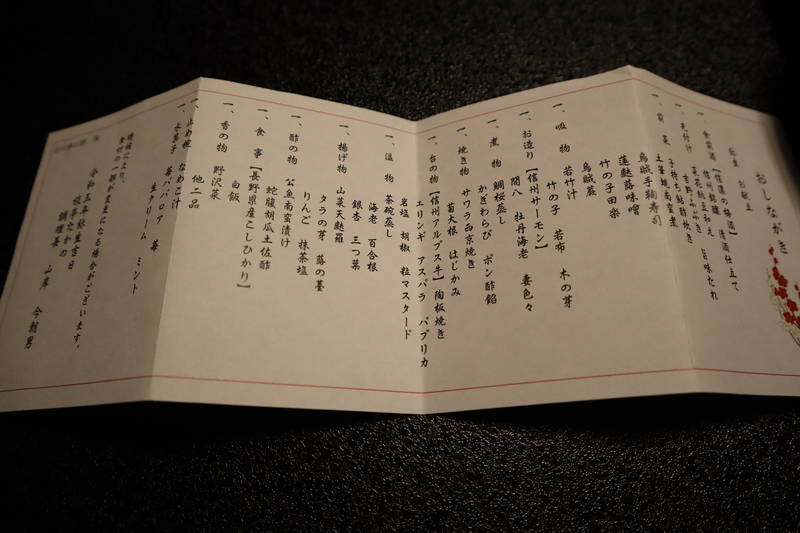 おしながき
献立
一、食前酒【信濃の梅酒】清酒仕立て
一、先付け
菜花胡豆和え 旨味だれ
一、前菜 子持ち鮎甘露煮
烏賊手鞠寿司
蓮麩蕗味噌
竹の子田楽
一、吸物 若竹汁
竹の子 若布 木の芽
一、お造り【信州サーモン】
間八 牡丹海老 妻色々
一、煮物 鯛桜蒸し
かぎわらび ポン酢餡
一、焼き物 サワラ西京焼き
菊大根 はじかみ
一、台の物【信州アルプス牛】陶板焼き
エリンギ アスパラ パプリカ
岩塩 胡椒 粒マスタード
一、温物 茶碗蒸し
海老 百合根
銀杏 三つ葉
一、揚げ物 山菜天麩羅
タラの芽 蕗の薹
りんご 抹茶塩
一、酢の物 公魚南蛮漬け
蛇腹胡瓜土佐酢
一、食事【長野県産こしひかり】
白飯
一、香の物 野沢菜
他二品
一、止め椀 なめこ汁
一、水菓子 苺ババロア 苺
生クリーム ミント
食材の一部が変更になる場合がございます。
令和三年弥生吉日
調理長 山岸 今朝男